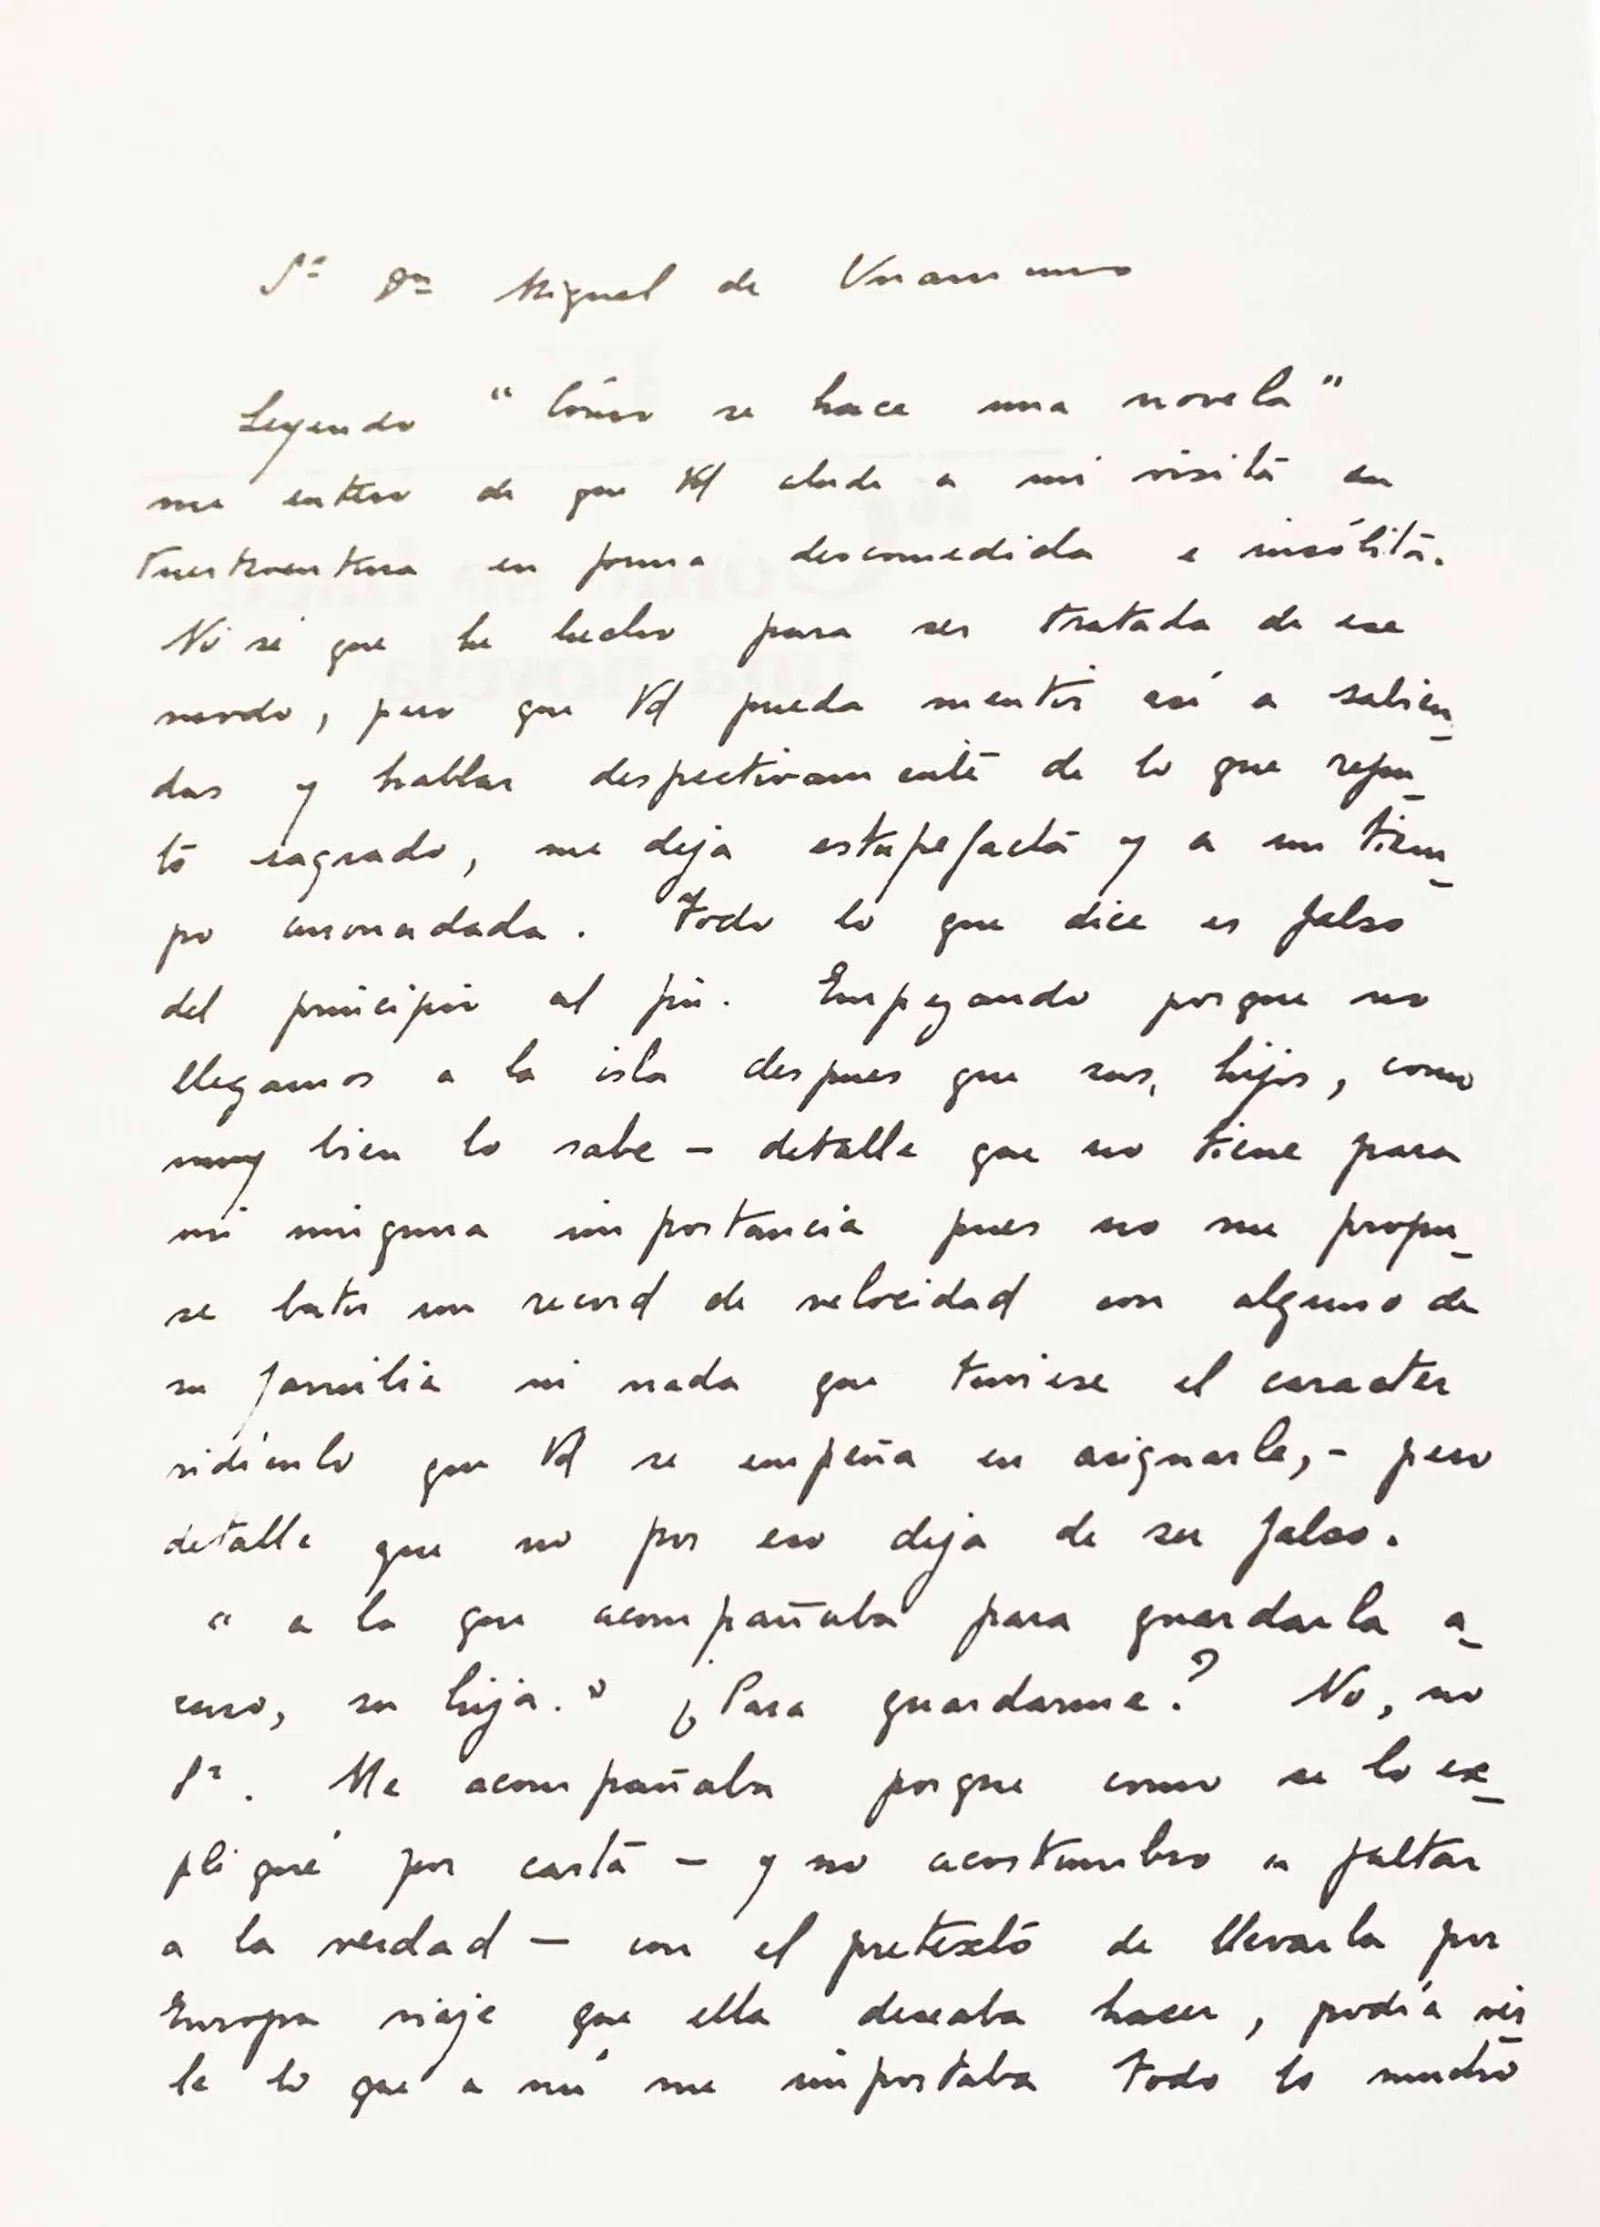 Sr Dn Miguel de Unamuno
Leyendo "Cómo se hace una novela"
me entero de que Vd alude a mi visita en
Fuerteventura en forma descomedida e insólita.
No sé que he hecho para ser tratada de ese
modo, pero que Vd pueda mentir así a sabien_
das y hablar despectivamente de lo que repu_
to sagrado, me deja estupefacta y a un tiem_
po anonadada. Todo lo que dice es falso
del principio al fin. Empezando porque no
llegamos a la isla despues que sus hijos, como
muy bien lo sabe – detalle que no tiene para
mi ninguna importancia pues no me propu_
se batir un record de velocidad con alguno de
su familia ni nada que tuviese el caracter
ridículo que Vd se empeña en asignarle, – pero
detalle que no por eso deja de ser falso.
"a la que acompañaba para guardarla a_
caso, su hija." ¿Para guardarme? No, no
Sr. Me acompañaba porque como se lo ex_
pliqué por carta – y no acostumbro a faltar
a la verdad – con el pretexto de llevarla por
Europa viaje que ella deseaba hacer, podía vir
le lo que a mí me importaba todo lo mucho